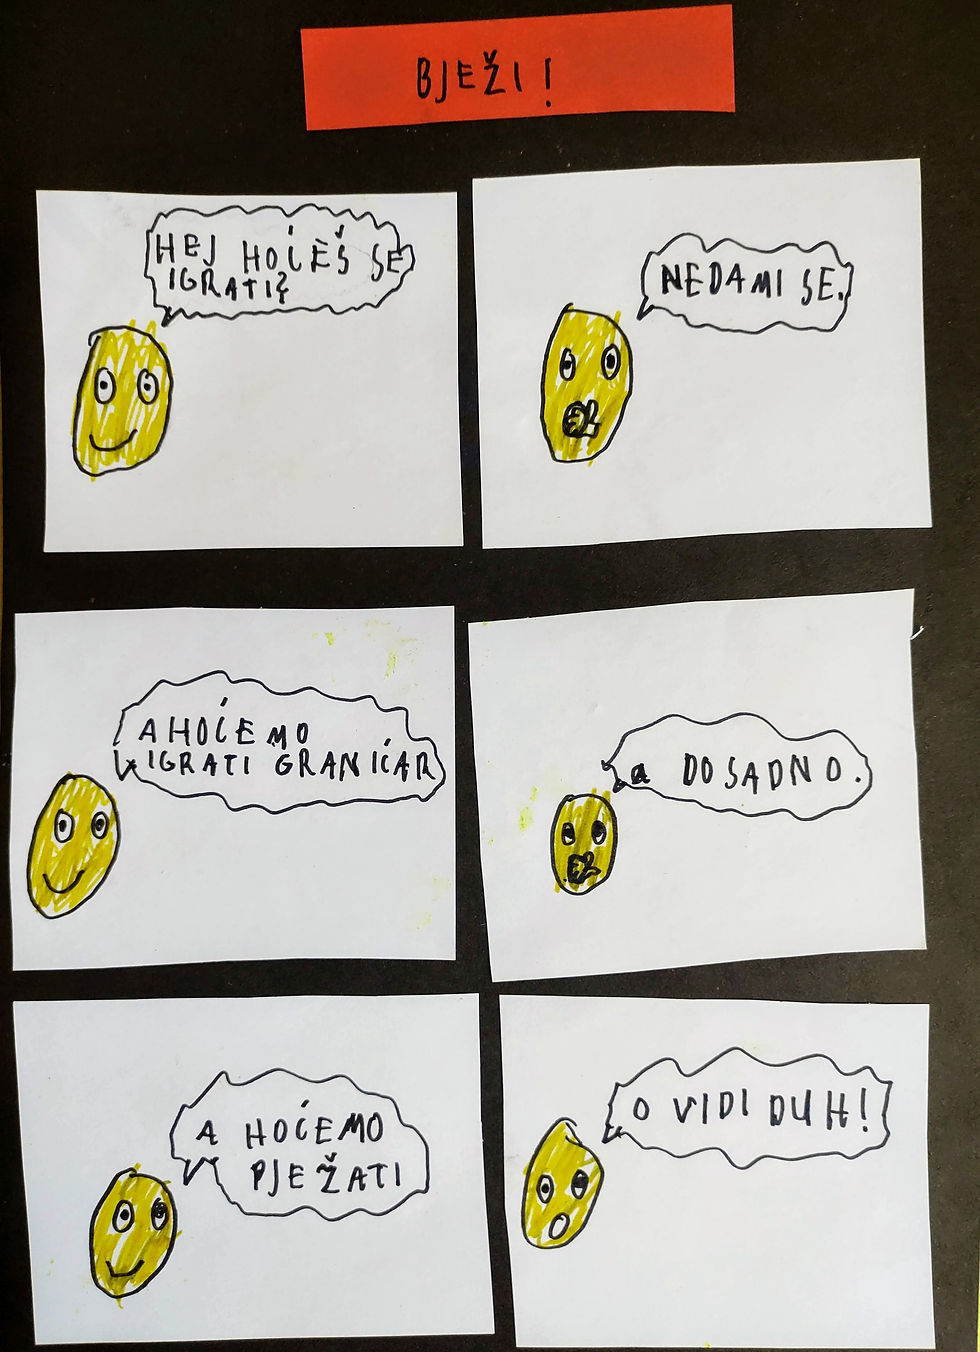 BJEŽI!
HEJ HOĆEŠ SE
IGRATI?
NEDAMI SE.
A HOĆEMO
IGRATI GRANIĆAR
a DOSADNO.
A HOĆEMO
PJEŽATI
O VIDI DUH!